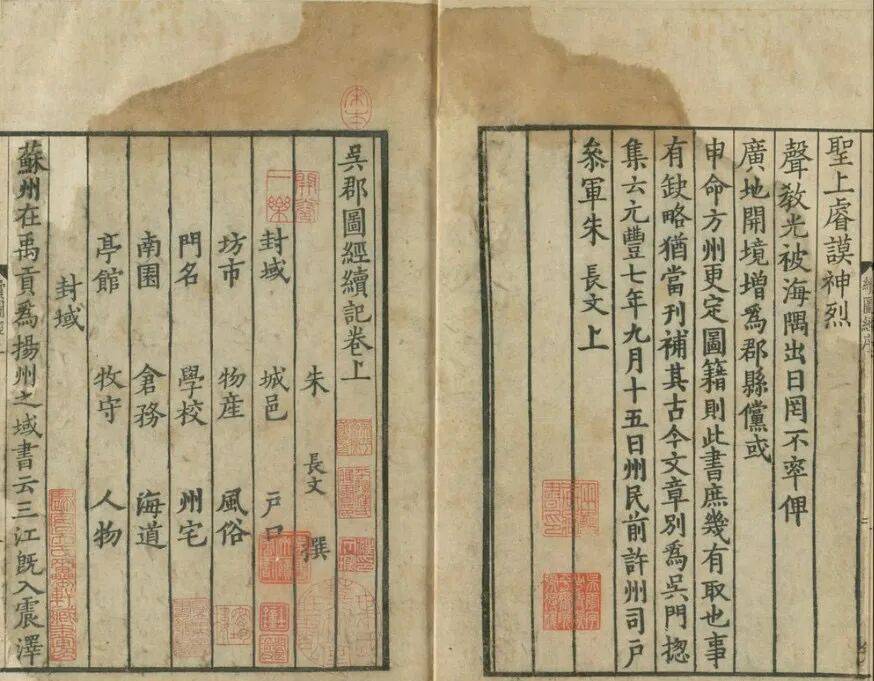 聖上睿謨神烈
聲敎光被海隅出日罔不率俾
廣地開境增爲郡縣儻或
申命方州更定圖籍則此書庶幾有取也事
有缺略猶當刊補其古今文章別爲吳門揔
集云元豐七年九月十五日州民前許州司戶
叅軍朱長文上
吳郡圖經續記卷上
朱長文撰
封域 城邑 戶口
坊市 物産 風俗
門名 學校 州宅
南園 倉務 海道
亭館 牧守 人物
封域
蘇州在禹貢爲揚州之域書云三江旣入震澤